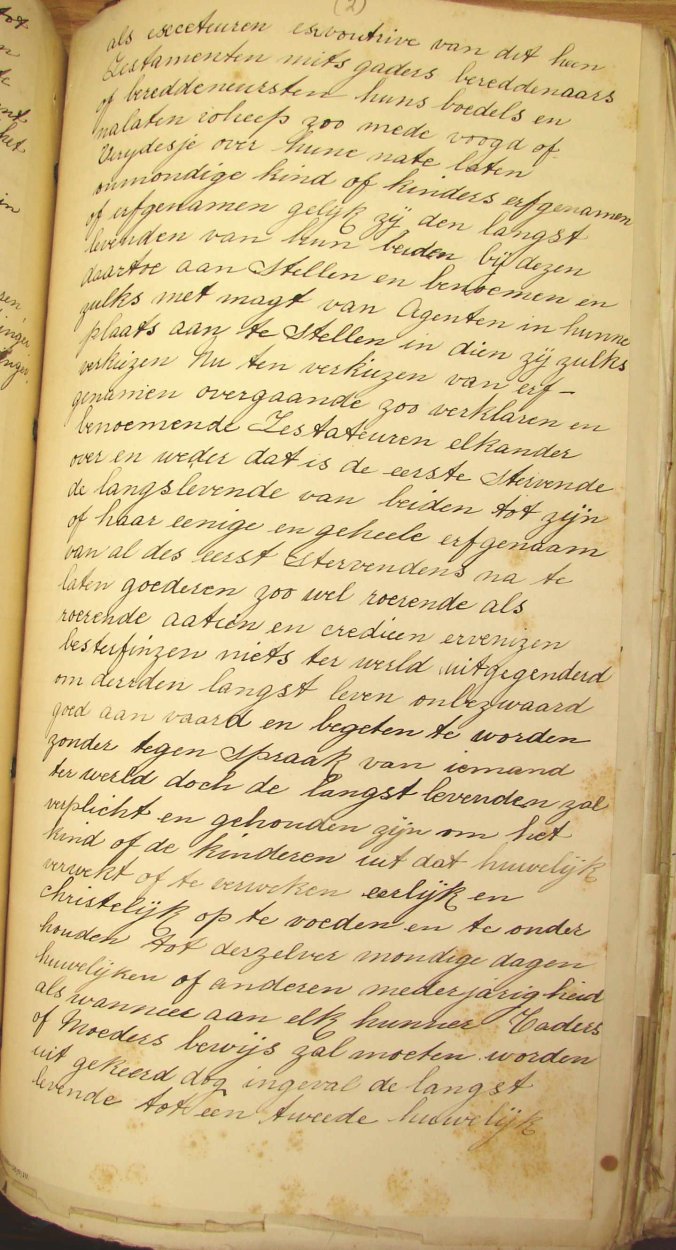 (2)
als execeteuren exvoutrive van dit hun
Testamenten mits gaders bereddenaars
of bereddeneursten huns boedels en
nalaten ioheep zoo mede voogd of
Verydesje over hune nate laten
onmondige kind of kinders erfgenamen
of erfgenamen gelijk zij den langst
levenden van hun beiden bij dezen
daartoe aan Stellen en benoemen en
zulks met magt van Agenten in hunne
plaats aan te Stellen in dien zij zulks
verkiezen Nu ten verkiezen van erf-
genamen overgaande zoo verklaren en
benoemende Testateuren elkander
over en weder dat is de eerste Stervende
de langslevende van beiden tot zijn
of haar eenige en geheele erfgenaam
van al des eerst Stervendens na te
laten goederen zoo wel roerende als
roerende aatien en credieen ervenizen
besterfinzen niets ter werld uitgegenderd
om dereden langst leven onbezwaard
goed aan vaard en begeten te worden
zonder tegen Spraak van iemand
ter werld doch de langst levenden zal
verplicht en gehouden zijn om het
kind of de kinderen uit dat huwelijk
verwekt of te verweken eerlijk en
christelijk op te voeden en te onder
houden tot derzelver mondige dagen
huwelijken of anderen mederjarigheid
als wanneer aan elk hunner Vaders
of Moeders bewijs zal moeten worden
uit gekeerd dog ingeval de langst
levende tot een tweede huwelijk